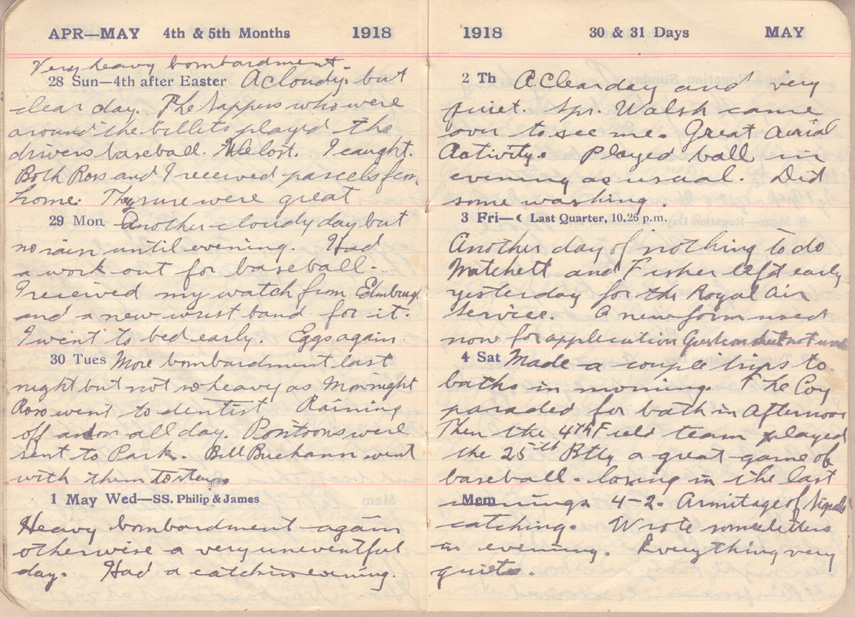 APR—MAY 4th & 5th Months 1918
Very heavy bombardment.
28 Sun—4th after Easter A cloudy but
clear day. The Sappers who were
around the billets played the
drivers baseball. We lost. I caught.
Both Ross and I received parcels from
home. They sure were great
29 Mon Another cloudy day but
no rain until evening. Had
a work out for baseball.
I received my watch from Edinburg
and a new wrist band for it.
I went to bed early. Eggs again
30 Tues More bombardment last
night but not so heavy as Mornight
Ross went to dentist Raining
off and on all day. Pontoons were
sent to Park. Bill Buchann went
with them to stay.
1 May Wed—SS. Philip & James
Heavy bombardment again
otherwise a very uneventful
day. Had a catch in evening.
1918 30 & 31 Days MAY
2 Th A clear day and very
quiet. Spr. Walsh came
over to see me. Great Aerial
Activity. Played ball in
evening as usual. Did
some washing.
3 Fri—☾ Last Quarter, 10.26 p.m.
Another day of nothing to do
Matchett and Fisher left early
yesterday for the Royal Air
Service. A new form used
now for application
4 Sat Made a couple trips to
baths in morning. The Coy
paraded for bath in afternoon
Then the 4th Field team played
the 25th Btty a great game of
baseball. losing in the last
Mem innings 4-2. Armitage of
catching. Wrote some letters
in evening. Everything very
quiet.